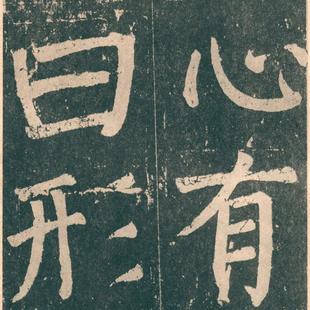 心有
曰形